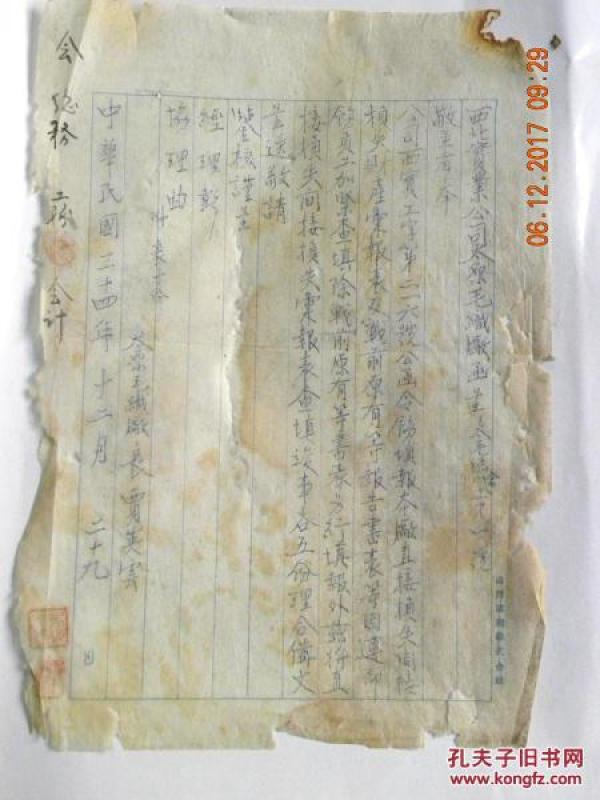 西北實業公司太原毛織廠函
敬呈者奉
公司西實工字第二二六號公函令飭填報本廠直接損失間接
損失財產彙報表及戰前原有等報告書表等因遵即
飭員工加緊查填除戰前原有等書表另行填報外茲將直
接損失間接損失彙報表查填竣事各五份理合備文
呈送敬請
鑒核謹呈
經理彭
協理曲
太原毛織廠長賈英雲
中華民國三十四年十二月二十九日
会 总务 会计
06.12.2017 09:29
孔夫子旧书网
www.kongfz.com